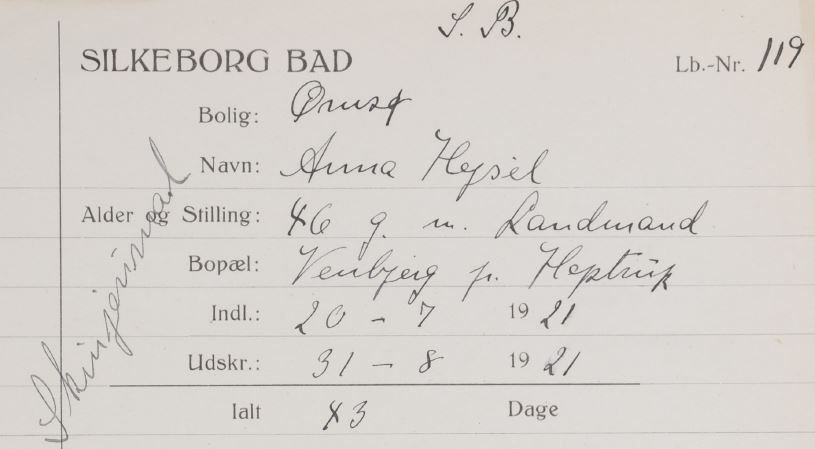 S. B.
SILKEBORG BAD
Lb.-Nr. 119
Bolig: Ørnsø
Navn: Anna Hejsel
Alder og Stilling: 46 g. m. Landmand
Bopæl: Venbjerg p. Heptrup
Indl.: 20 - 7 1921
Udskr.: 31 - 8 1921
Ialt 43 Dage